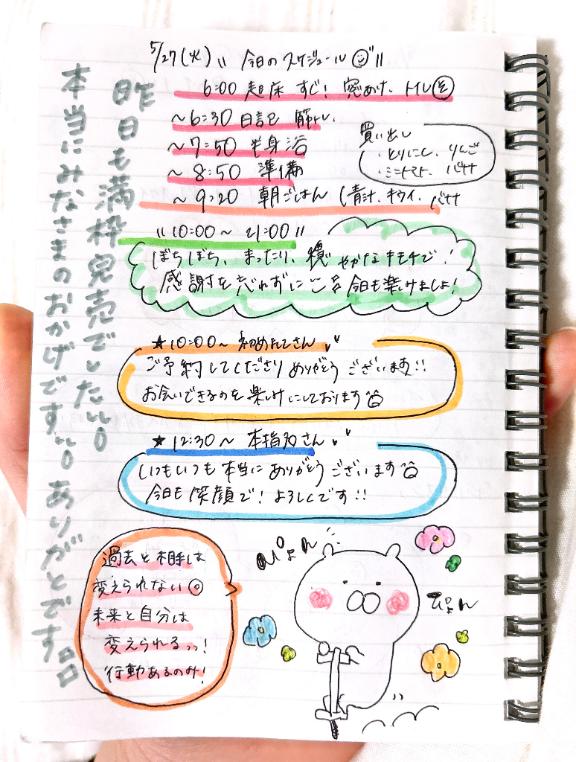 5/27(火) "今日のスケジュール"
6:00 起床 すぐ! 窓あけ、トイレ
~6:30 日記 解トレ、
~7:50 半身浴
~8:50 準備
~9:20 朝ごはん(青汁、キウイ、バナナ
買い出し
・とりにく、りんご
・ミニトマト、バナナ
"10:00~21:00"
ぼちぼち、まったり、穏やかなキモチで!
感謝を忘れずに 今日も楽しみましょ!
★10:00~ 初めましてさん
ご予約してくださりありがとうございます!!
お会いできるのを楽しみにしております
★12:30~ 本指名さん
いつもいつも本当にありがとうございます
今日も笑顔で! よろしくです!!
過去と相手は
変えられない
未来と自分は
変えられるっ!
行動あるのみ!
ぴょん
ぴょん
昨日も満枠完売でした
本当にみなさまのおかげです ありがとです